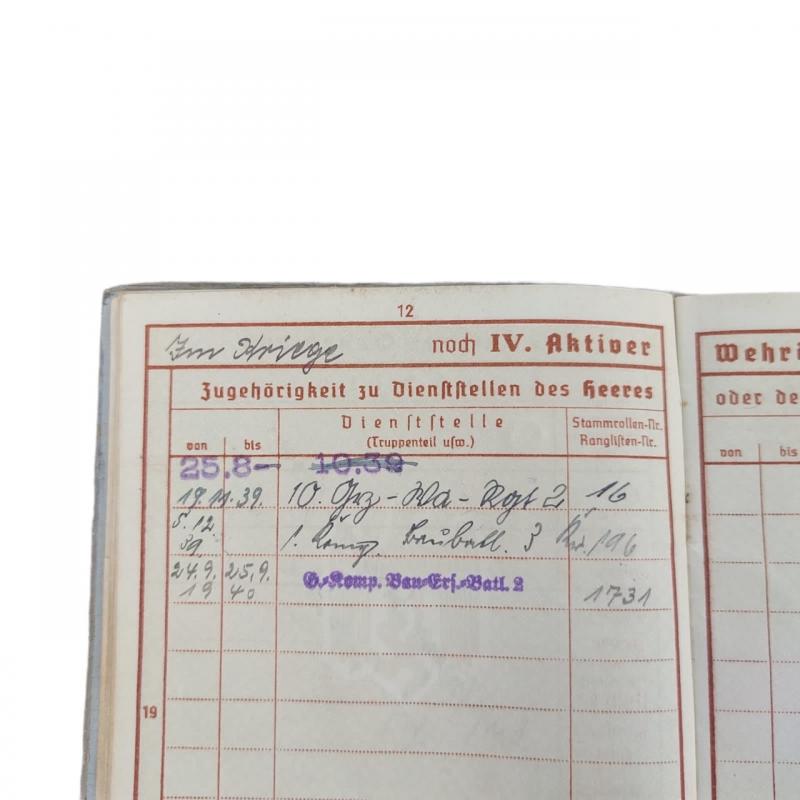 12
Im Kriege noch IV. Aktiver
Wehri
Zugehörigkeit zu Dienststellen des Heeres
oder de
von bis
Dienststelle
(Truppenteil usw.)
Stammrollen-Nr.
Ranglisten-Nr.
von bis
25.8- 10.39
19.11.39. 10. Grz-Wa-Rgt 2 16
5.12
39. 1. Komp. Baubatl. 3 Kr. 196
24.9. 25.9.
19 40 G.-Komp. Bau-Ers.-Batl. 2 1731
19